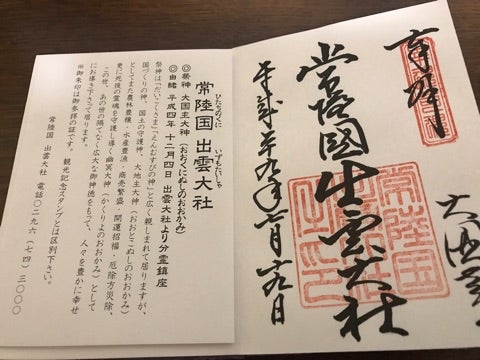 奉拝
常陸國出雲大社
常陸国
出雲大社
之印
ひたちのくに いずもたいしゃ
常陸国 出雲大社
◎祭神 大国主大神(おおくにぬしのおおかみ)
◎由緒 平成四年 十二月四日 出雲大社より分霊鎮座
祭神は「だいこくさま」「えんむすびの神」と広く親しまれて居りますが、
国づくりの神、国土の守護神、大地主大神(おおとこぬしのおおかみ)
としてまた農林豊穣・水産豊漁・商売繁盛・開運招福・厄除方災除、
更に死後の霊魂を守護し導く幽冥大神(かくりよのおおかみ)として
この世、あの世の隔てなく広大な御神徳をもって、人々を豊かに幸せ
にお導き下さって居ります。
※御朱印は御参拝の証です。 観光記念スタンプとは区別下さい。
常陸国 出雲大社 電話〇二九六(七四)三〇〇〇